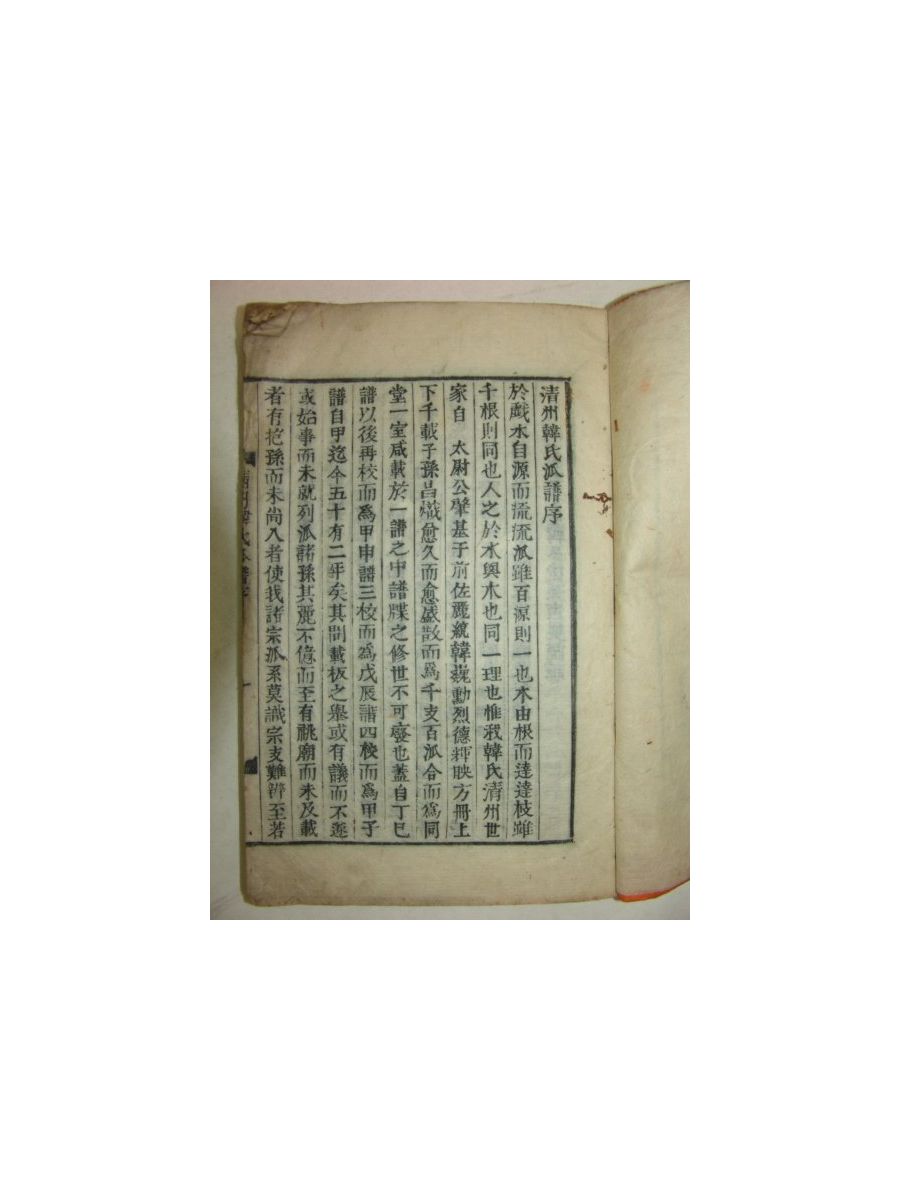 清州韓氏派譜序
於戱水自源而流流派雖百源則一也木由根而達達枝雖
千根則同也人之於水與木也同一理也惟我韓氏清州世
家自 太尉公肇基于前佐麗統韓巍勳烈德輝映方冊上
下千載子孫昌熾愈久而愈盛散而爲千支百派合而爲同
堂一室咸載於一譜之中譜牒之修世不可廢也蓋自丁巳
譜以後再校而爲甲申譜三校而爲戊辰譜四校而爲甲子
譜自甲迄今五十有二年矣其間載板之擧或有議而不遂
或始事而未就列派諸孫其麗不億而至有祧廟而未及載
者有抱孫而未尚入者使我諸宗派系莫識宗支難辨至若